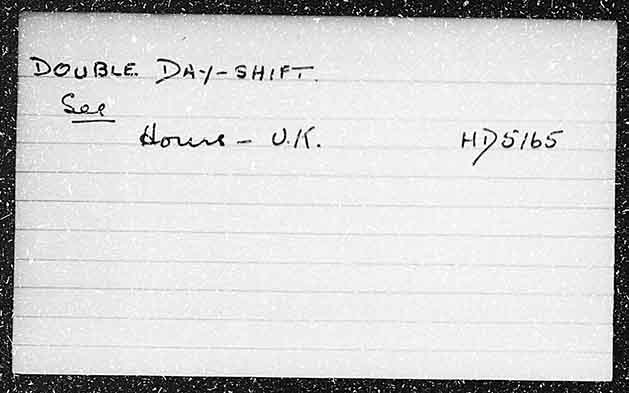 DOUBLE DAY-SHIFT.
See
Hours - U.K. HD5165